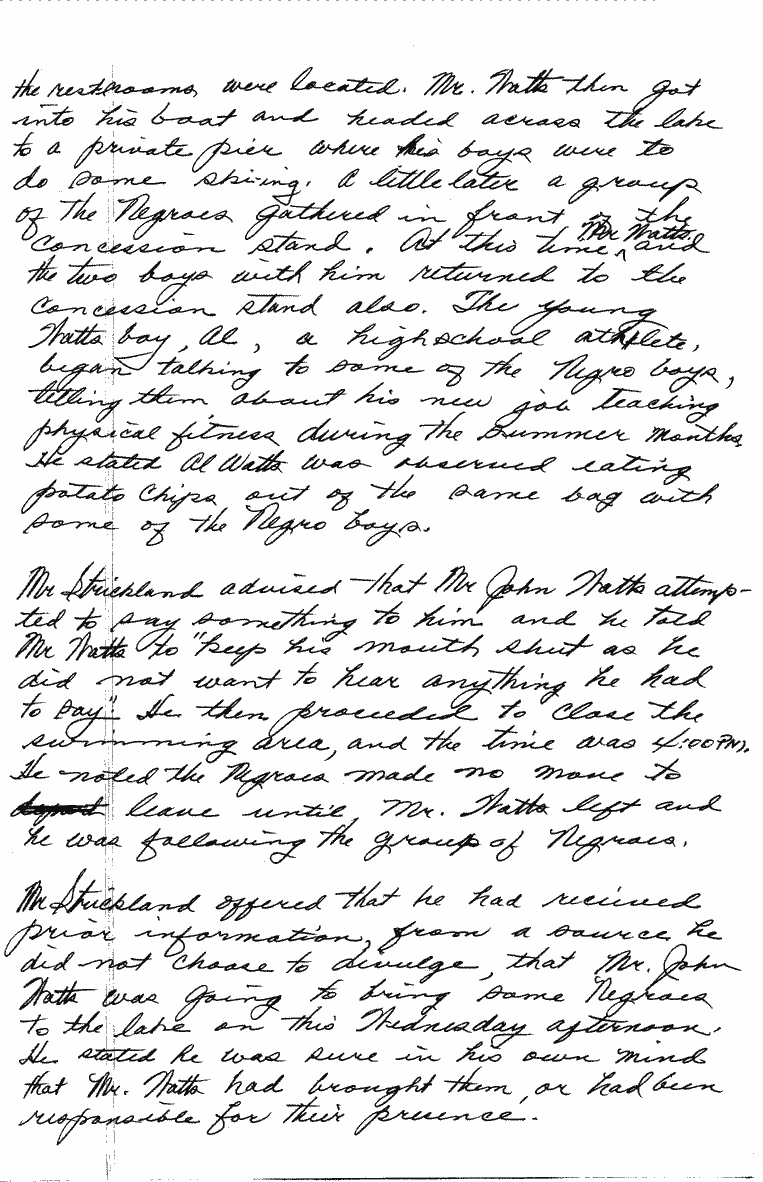 the restrooms were located. Mr. Watts then got
into his boat and headed across the lake
to a private pier where his boys were to
do some ski-ing. A little later a group
of the Negroes gathered in front of the
concession stand. At this time, Mr Watts and
the two boys with him returned to the
concession stand also. The young
Watts boy, Al, a highschool athlete,
began talking to some of the Negro boys,
telling them about his new job teaching
physical fitness during the summer months.
He stated Al Watts was observed eating
potato chips out of the same bag with
some of the Negro boys.
Mr Strickland advised that Mr John Watts attemp-
ted to say something to him and he told
Mr Watts to "keep his mouth shut as he
did not want to hear anything he had
to say". He then proceeded to close the
swimming area, and the time was 4:00 PM.
He noted the Negroes made no move to
leave until Mr. Watts left and
he was following the group of Negroes.
Mr Strickland offered that he had received
prior information, from a source he
did not choose to divulge, that Mr. John
Watts was going to bring some Negroes
to the lake on this Wednesday afternoon.
He stated he was sure in his own mind
that Mr. Watts had brought them, or had been
responsible for their presence.